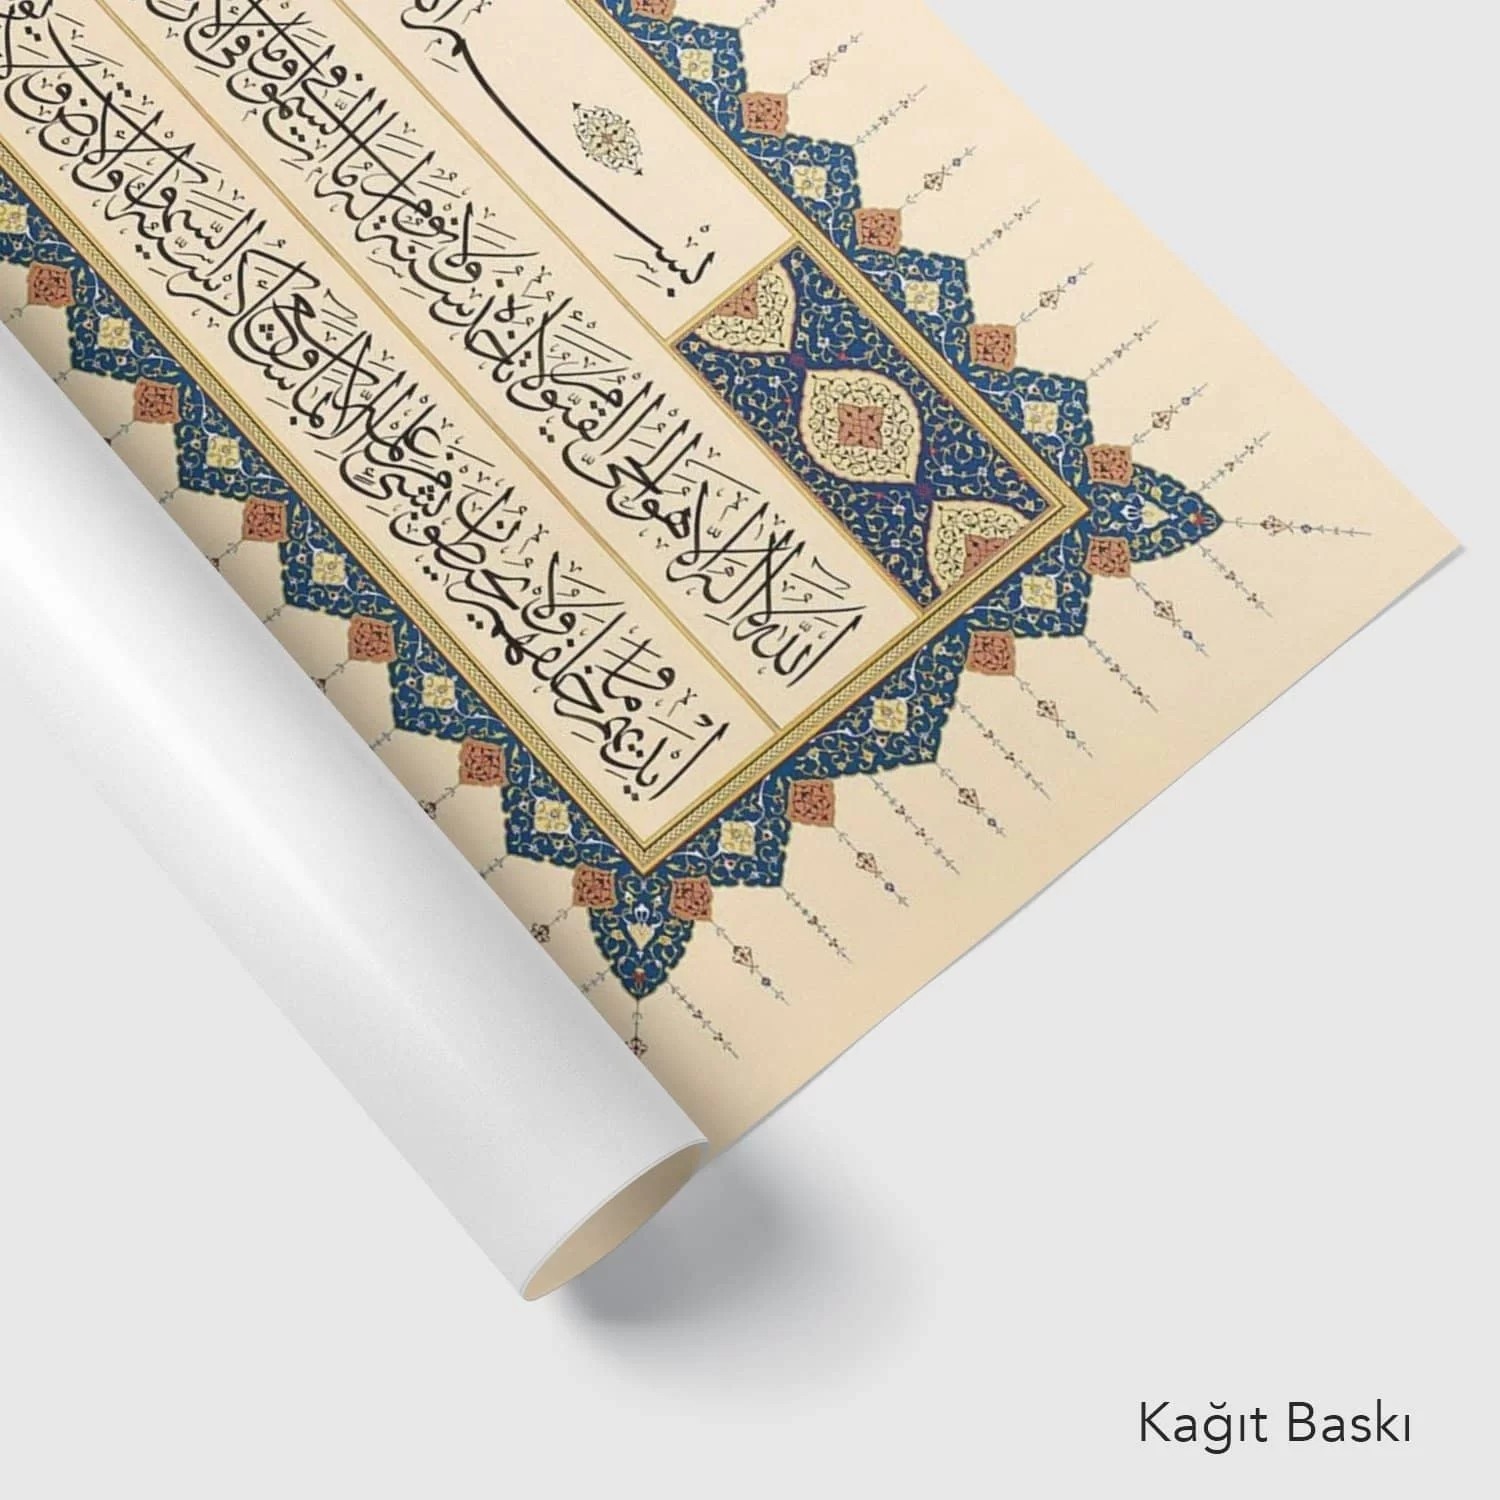 بِسْمِ
اَللّٰهُ لَا اِلٰهَ اِلَّا هُوَ الْحَيُّ الْقَيُّومُ لَا تَأْخُذُهُ سِنَةٌ وَلَا نَوْمٌ لَهُ مَا فِي السَّمٰوَاتِ وَمَا فِي
اَيْدِيهِمْ وَمَا خَلْفَهُمْ وَلَا يُحِيطُونَ بِشَيْءٍ مِنْ عِلْمِهِ اِلَّا بِمَا شَاءَ وَسِعَ كُرْسِيُّهُ السَّمٰوَاتِ وَالْاَرْضَ
Kağıt Baskı